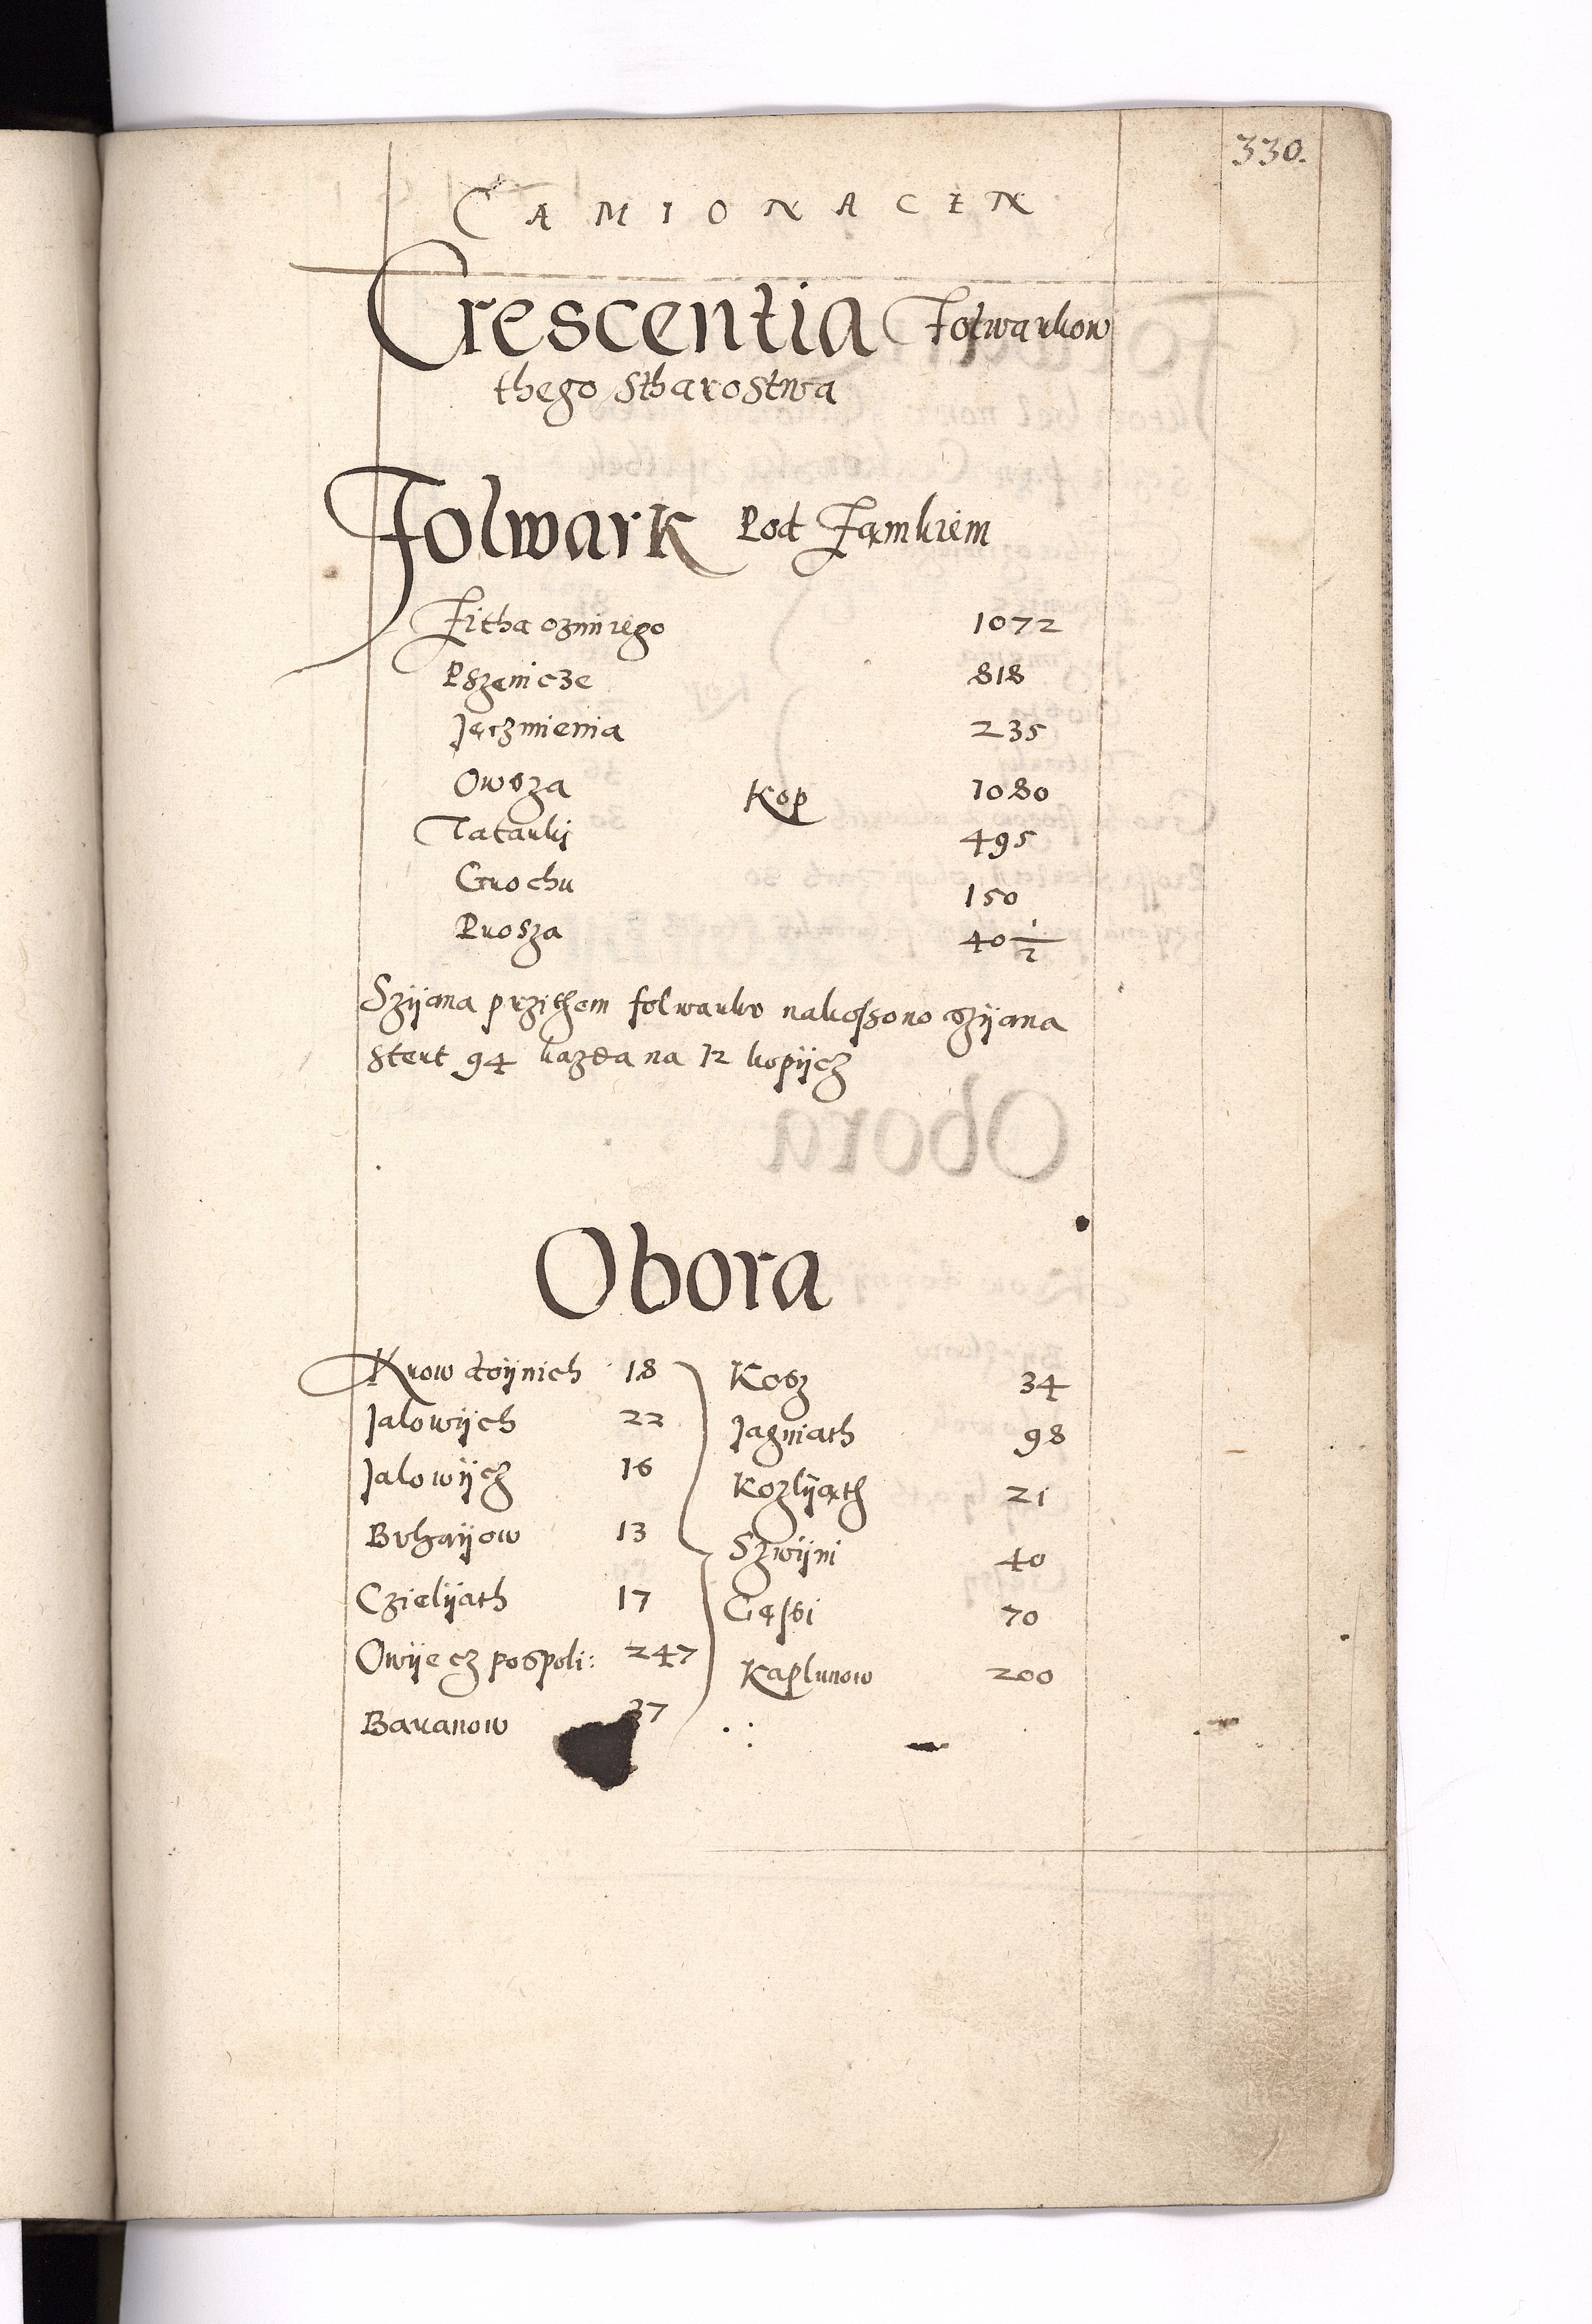 330.
CAMIONACEN
Crescentia Folwarkow
thego Stharostwa
Folwark Pod Zamkiem
Zitha ozimiego 1072
Pszenicze 818
Jęczmienia 235
Owsza Kop 1080
Tatarki 495
Grochu 150
Prosza 40 1/2
Szijana przithem folwarko nakossono szijana
stert 94 kazda na 12 kopijcz
Obora
Krow doijnich 18 Kosz 34
Jalowijch 22 Jagniath 98
Jalowijcz 16 Kozlijath 21
Buhaijow 13 Szwijni 40
Czielijath 17 Gęssi 70
Owijecz pospoli: 247 Kaplunow 200
Baranow 37